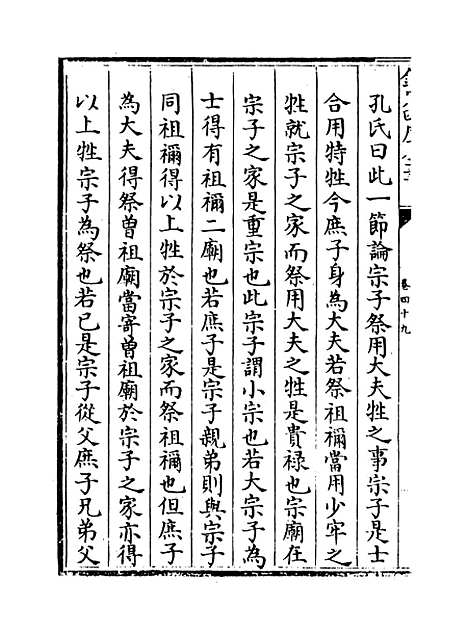 孔氏曰此一節論宗子祭用大夫牲之事宗子是士
合用特牲今庶子身為大夫若祭祖禰當用少牢之
牲就宗子之家而祭用大夫之牲是貴祿也宗廟在
宗子之家是重宗也此宗子謂小宗也若大宗子為
士得有祖禰二廟也若庶子是宗子親弟則與宗子
同祖禰得以上牲於宗子之家而祭祖禰也但庶子
為大夫得祭曾祖廟當寄曾祖廟於宗子之家亦得
以上牲宗子為祭也若已是宗子從父庶子兄弟父
卷四十九